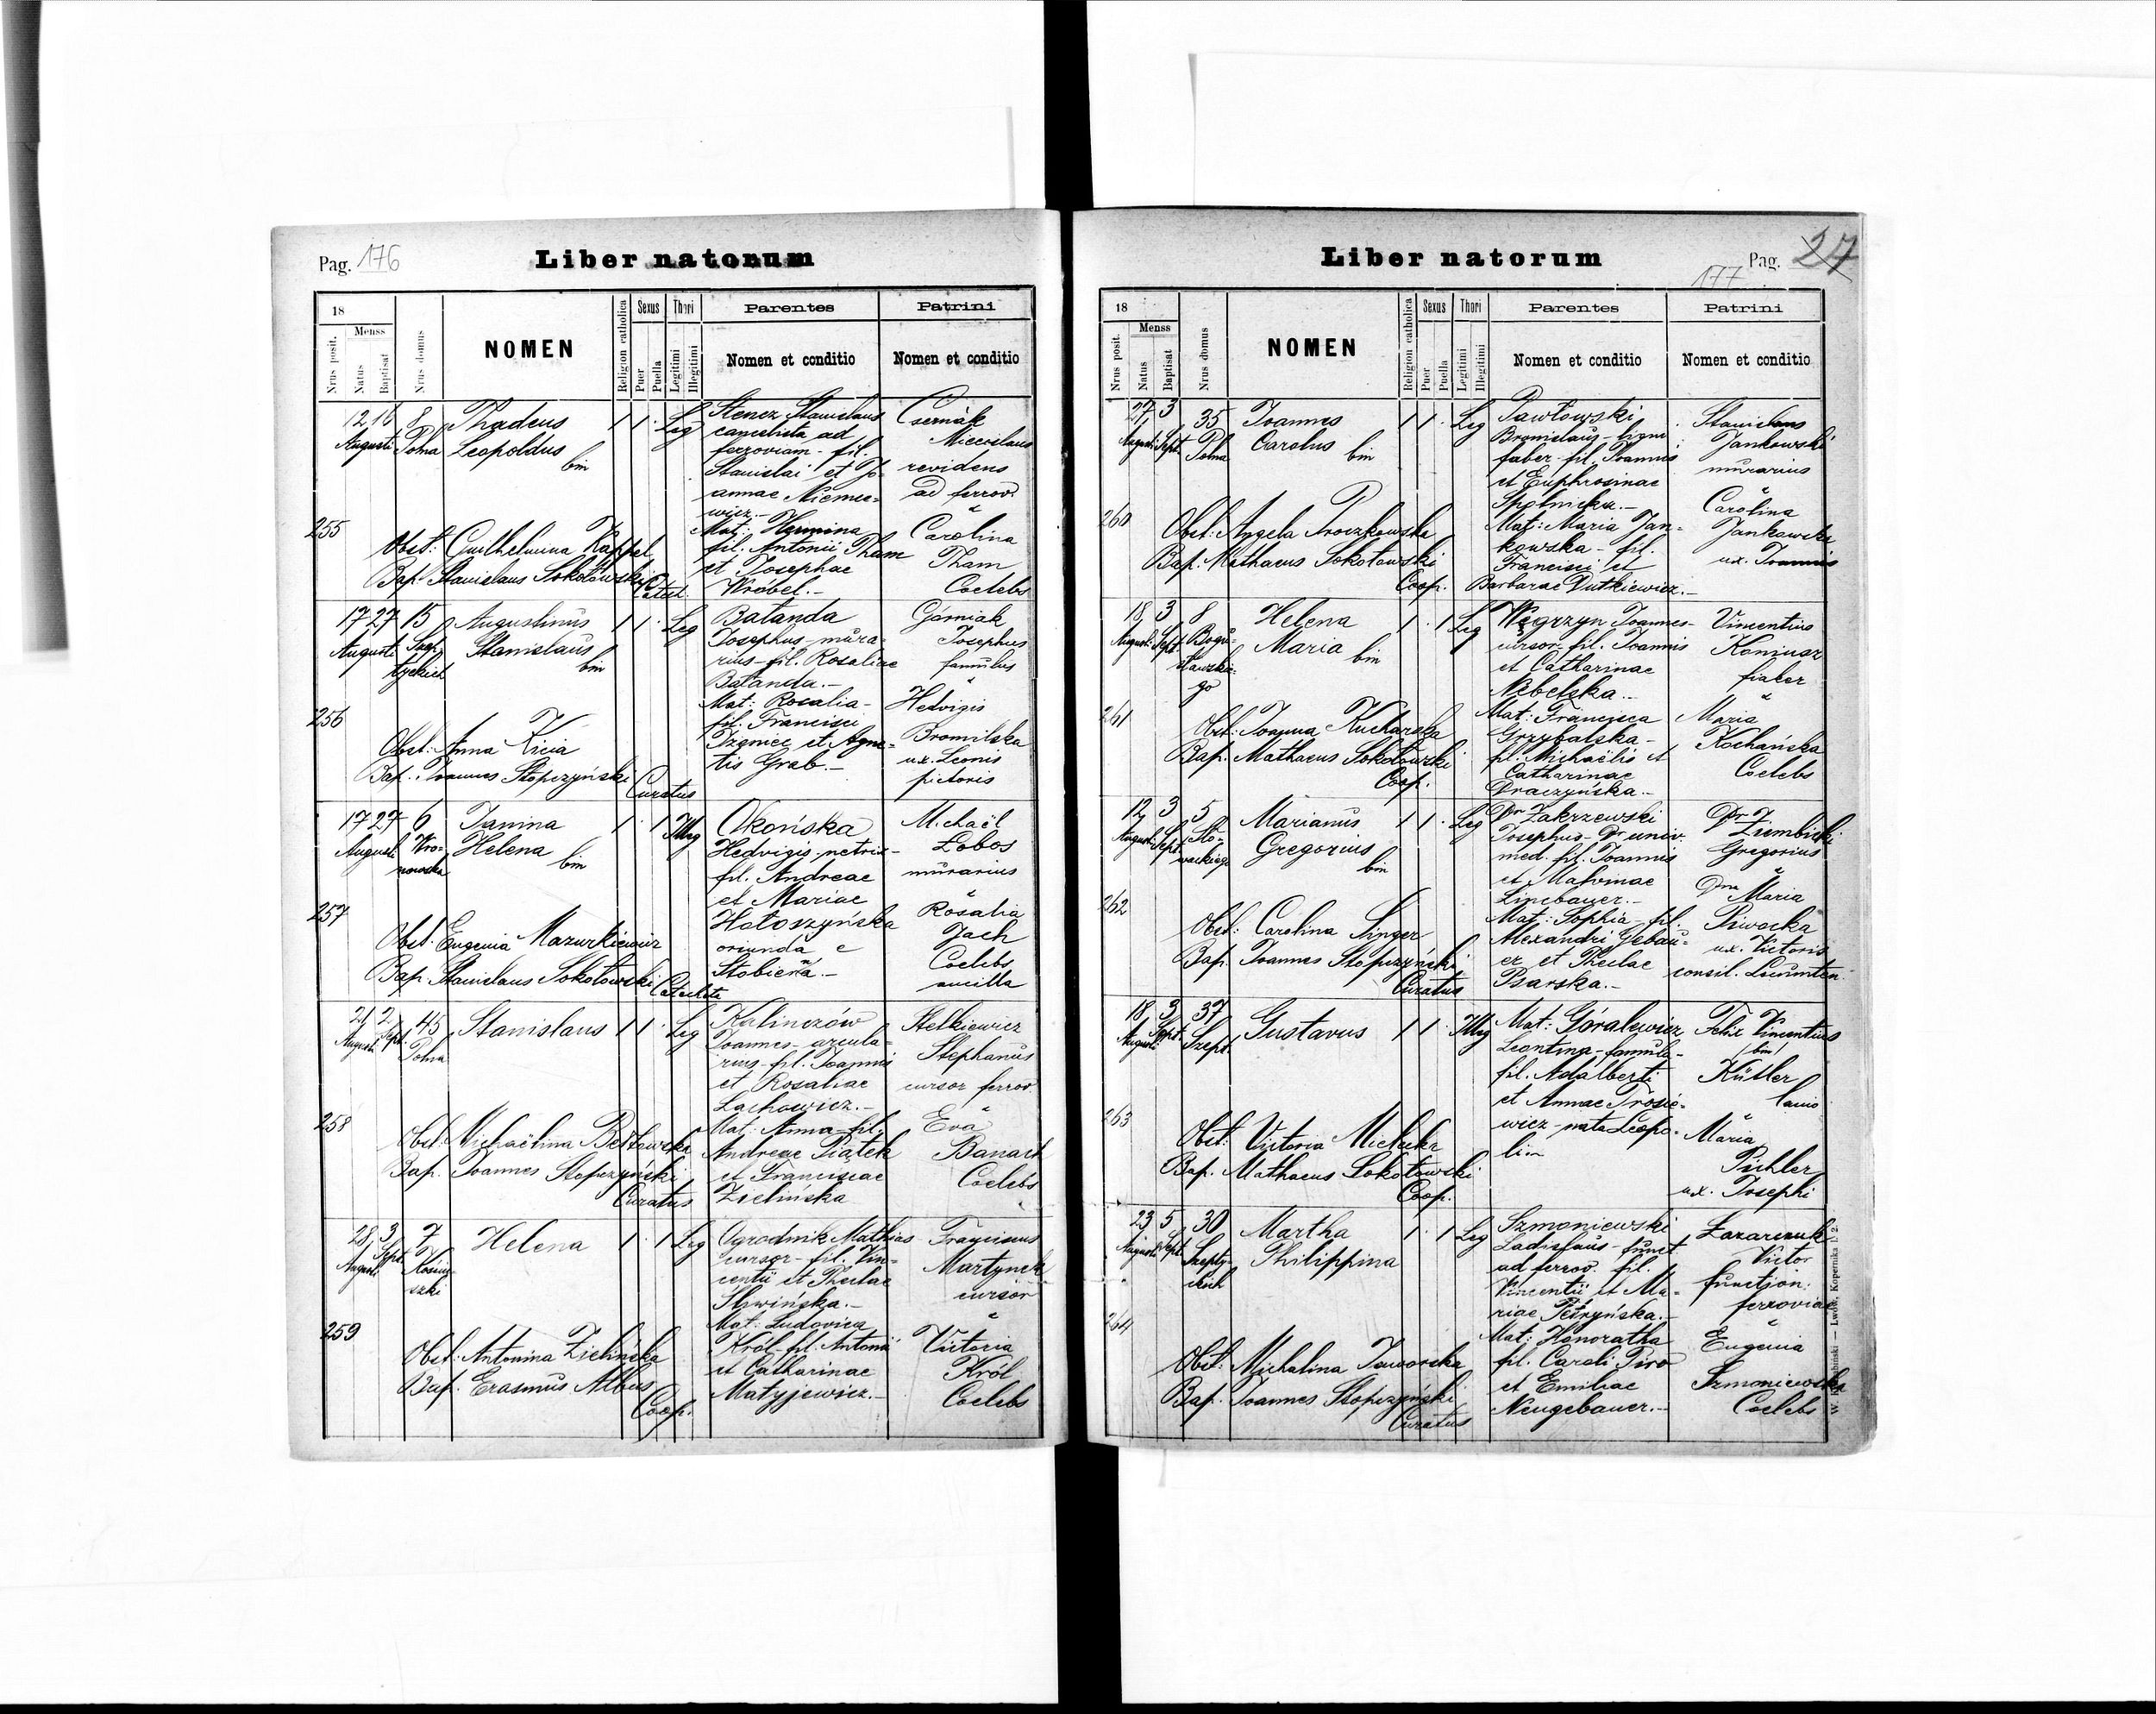 Pag. 176
Liber natorum
18
Menss
Nrus posit.
Natus
Baptisat
Nrus domus
NOMEN
Religion catholica
Sexus
Puer
Puella
Thori
Legitimi
Illegitimi
Parentes
Nomen et conditio
Patrini
Nomen et conditio
255
12 16 8
Augusti Polna
Thadeus
Leopoldus
bin
1 1 . Leg
Obst: Guilhelmina Kappel
Bap. Stanislaus Sokołowski
Catech.
Stenez Stanislaus
cancelista ad
ferroviam - fil.
Stanislai et Jo-
annae Niemce-
wicz.-
Mat: Hermina
fil. Antonii Tham
et Josephae
Wróbel.-
Csernák
Miecislaus
revidens
ad ferrov.
Carolina
Tham
Coelebs
256
17 27 15
Augusti Szep-
tyckich
Augustinus
Stanislaus
bin
1 1 . Leg
Obst: Anna Kicia
Bap. Joannes Stopczyński
Curatus
Bałanda
Josephus mura-
rius - fil. Rosaliae
Bałanda.-
Mat: Rosalia -
fil. Francisci
et Agne-
tis Grab.-
Górniak
Josephus
famulus
Hedvigis
Bromilska
ux. Leonis
pictoris
257
17 27 6
Augusti Wro-
nowska
Janina
Helena
bin
1 . 1 Illeg
Obst. Eugenia Mazurkiewicz
Bap. Stanislaus Sokołowski
Catecheta
Okońska
Hedvigis netrix -
fil. Andreae
et Mariae
Hołoszyńska
oriunda e
Stobierna.-
Michaël
Łobos
murarius
Rosalia
Jach
Coelebs
ancilla
258
21 2 45
Augusti Sept. Polna
Stanislaus
1 1 . Leg
Obst. Michaëlina
Bap. Joannes Stopczyński
Curatus
Kalinczów
Joannes - arcula-
rius - fil. Joannis
et Rosaliae
Lachowicz.-
Mat: Anna - fil.
Andreae Piątek
et Franciscae
Zielińska
Stetkiewicz
Stephanus
cursor ferrov.
Eva
Banach
Coelebs
259
28 3 7
Augusti Sept. Kościu-
szki
Helena
1 . 1 Leg
Obst: Antonina Zielińska
Bap. Erasmus Albus
Coop.
Ogrodnik Mathias
cursor - fil. Vin-
centii et Theclae
Śliwińska.-
Mat: Ludovica
Król - fil. Antonii
et Catharinae
Matyjewicz.-
Franciscus
Martynek
cursor
Victoria
Król
Coelebs
Liber natorum
177
Pag. 27
18
Menss
Nrus posit.
Natus
Baptisat
Nrus domus
NOMEN
Religion catholica
Sexus
Puer
Puella
Thori
Legitimi
Illegitimi
Parentes
Nomen et conditio
Patrini
Nomen et conditio
260
27 3 35
Augusti Sept. Polna
Joannes
Carolus
bin
1 1 . Leg
Obst: Angela Troczkowska
Bap. Mathaeus Sokołowski
Coop.
Pawłowski
Bronislaus - ligni
faber - fil. Joannis
et Euphrosinae
Spolnicka.-
Mat: Maria Jan-
kowska - fil.
Francisci et
Barbarae Dutkiewicz.-
Stanislaus
Jankowski
murarius
Carolina
Jankowska
ux. Joannis
261
18 3 8
Augusti Sept. Bogu-
sławskie-
go
Helena
Maria
bin
1 . 1 Leg
Obst: Joanna Kucharska
Bap. Mathaeus Sokołowski
Coop.
Węgrzyn Joannes -
cursor - fil. Joannis
et Catharinae
Nebelska.-
Mat: Francisca
Grzybalska -
fil. Michaëlis et
Catharinae
Draczyńska.-
Vincentius
Koniusz
fiaker
Maria
Kochańska
Coelebs
262
12 3 5
Augusti Sept. Sło-
wackiego
Marianus
Gregorius
bin
1 1 . Leg
Obst: Carolina Singer
Bap. Joannes Stopczyński
Curatus
Dr Zakrzewski
Josephus - Dr univ.
med. fil. Joannis
et Malvinae
Linebauer.-
Mat: Sophia - fil.
Alexandri Gebau-
er et Theclae
Psarska.-
Dr Z.
Ziembicki
Gregorius
Dna Maria
Piwocka
ux. Victoris
consil. Locumten.
263
18 3 37
Augusti Sept. Szept.
Gustavus
1 1 . Illeg
Obst: Victoria
Bap. Mathaeus Sokołowski
Coop.
Mat: Góralewicz
Leontina - famula -
fil. Adalberti
et Annae Trosie-
wicz - nata Leopo-
li.-
Felix Vincentius
bin
Küttler
lanio
Maria
Pichler
ux. Josephi
264
23 5 30
Augusti Sept. Szepty-
ckich
Martha
Philippina
1 . 1 Leg
Obst: Michalina Jaworska
Bap. Joannes Stopczyński
Curatus
Szmoniewski
Ladislaus - funct.
ad ferrov. fil.
Vincentii et Ma-
riae Petryńska.-
Mat: Honoratha
fil. Caroli Piro
et Emiliae
Neugebauer.-
Łazarczuk
Victor
function.
ferroviae
Eugenia
Szmoniewska
Coelebs